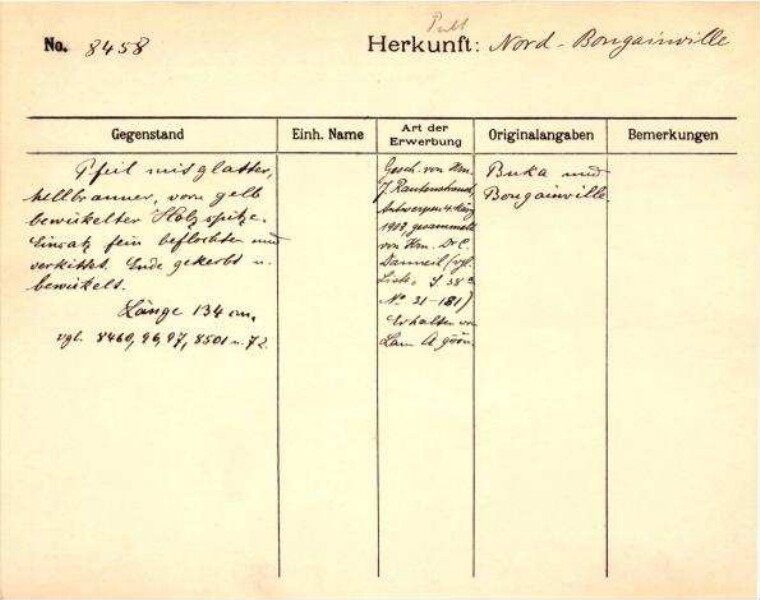 No. 8458
Herkunft: Nord-Bougainville
Gegenstand
Einh. Name
Art der Erwerbung
Originalangaben
Bemerkungen
Pfeil mit glatter,
hellbrauner, vorn gelb
bewickelter Holzspitze.
Einsatz fein beflochten und
verkittet. Ende gekerbt u.
bewickelt.
Länge 134 cm.
vgl. 8460, 96, 97, 8501 u. 72.
Gesch. von Hrn.
J. Rautenstrauch,
Antwerpen 4. März
1903, gesammelt
von Hrn. Dr C.
Danneil (vgl.
Liste S 38
No 31-181)
Erhalten von
Buka und
Bougainville.